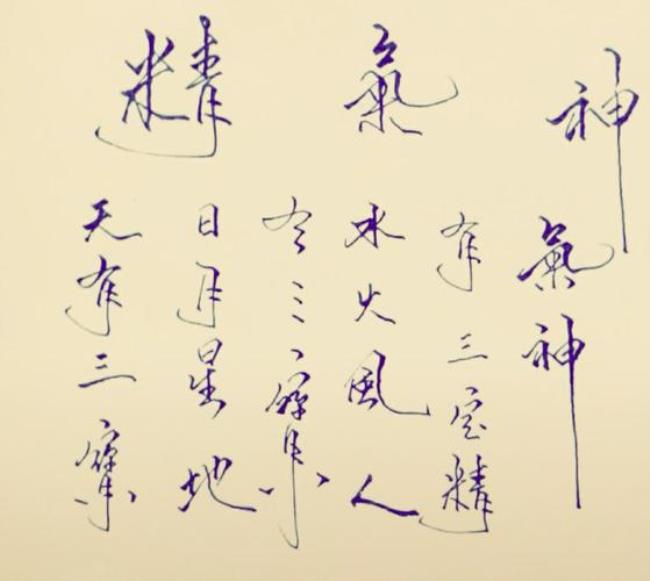 精 氣 神
天有三寶
日月星地
有三寶
水火風人
有三宝精
氣神